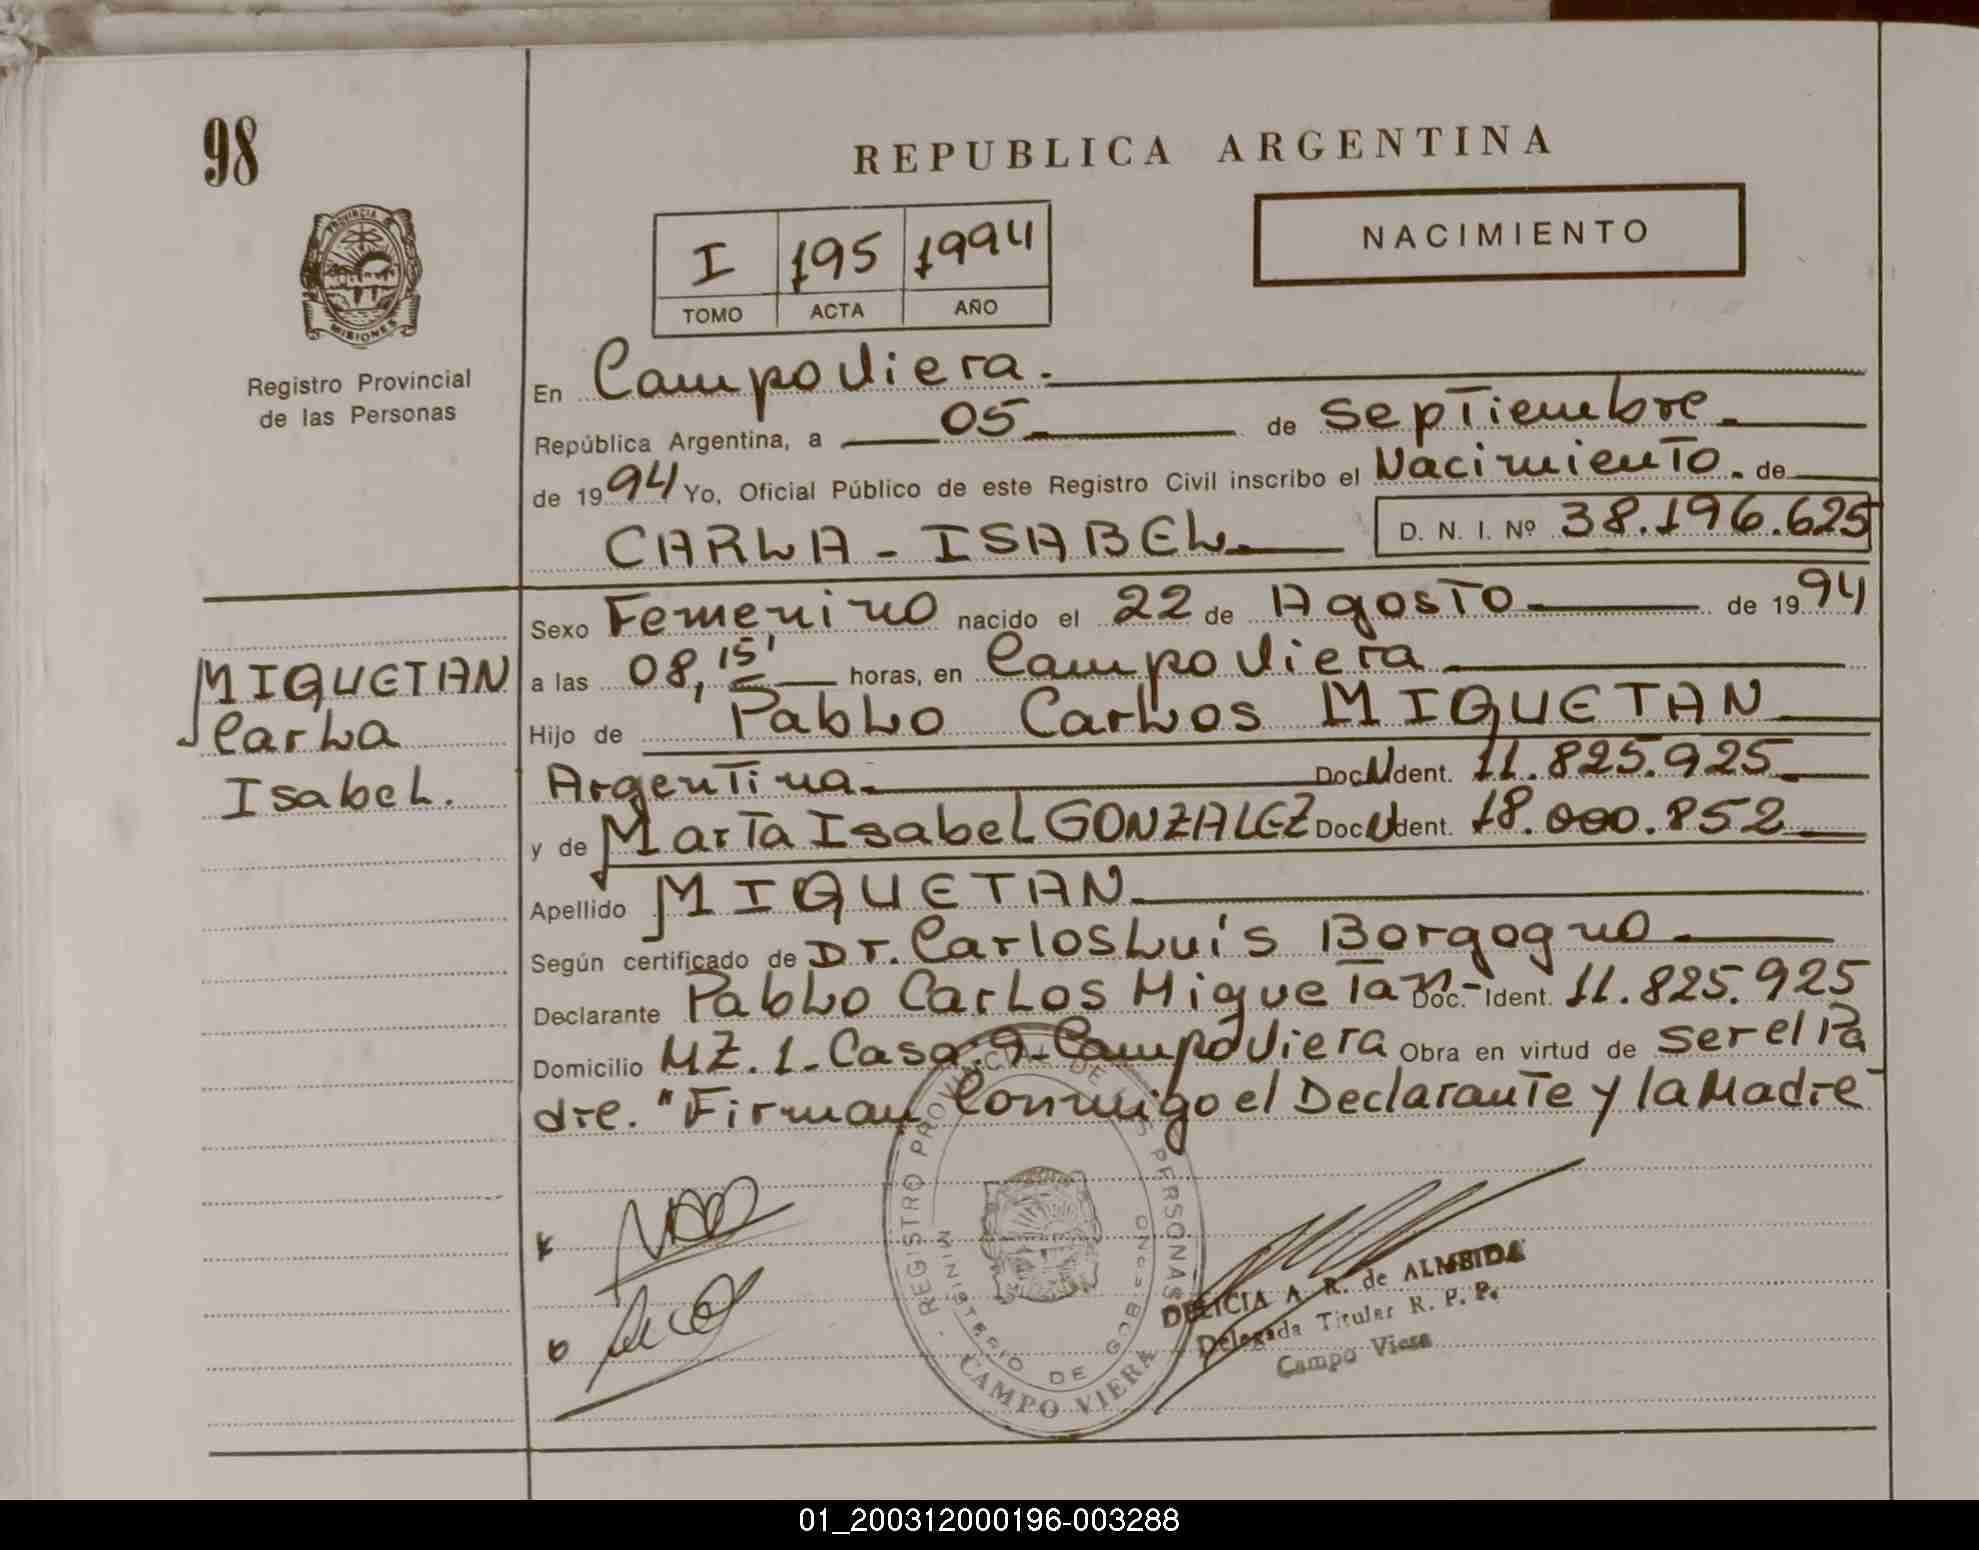 98
REPUBLICA ARGENTINA
PROVINCIA DE
MISIONES
Registro Provincial
de las Personas
I 195 1994
TOMO ACTA AÑO
NACIMIENTO
En Campo Viera.
República Argentina, a 05 de Septiembre.
de 1994 Yo, Oficial Público de este Registro Civil inscribo el Nacimiento. de
CARLA - ISABEL. D. N. I. Nº 38.196.625
Sexo Femenino nacido el 22 de Agosto de 1994
MIQUETAN
Carla
Isabel.
a las 08,15' horas, en Campo Viera
Hijo de Pablo Carlos MIQUETAN
Argentina. Doc. Ident. 11.825.925
y de Marta Isabel GONZALEZ Doc. Ident. 18.000.852
Apellido MIQUETAN
Según certificado de Dr. Carlos Luís Borgogno
Declarante Pablo Carlos Miquetan Doc. Ident. 11.825.925
Domicilio MZ. 1 - Casa: 9 - Campo Viera Obra en virtud de ser el Pa
dre. "Firman Conmigo el Declarante y la Madre
REGISTRO PROVINCIAL DE LAS PERSONAS
MINISTERIO DE GOBIERNO
CAMPO VIERA
DELICIA A. R. de ALMEIDA
Delegada Titular R. P. P.
Campo Viera
01_200312000196-003288